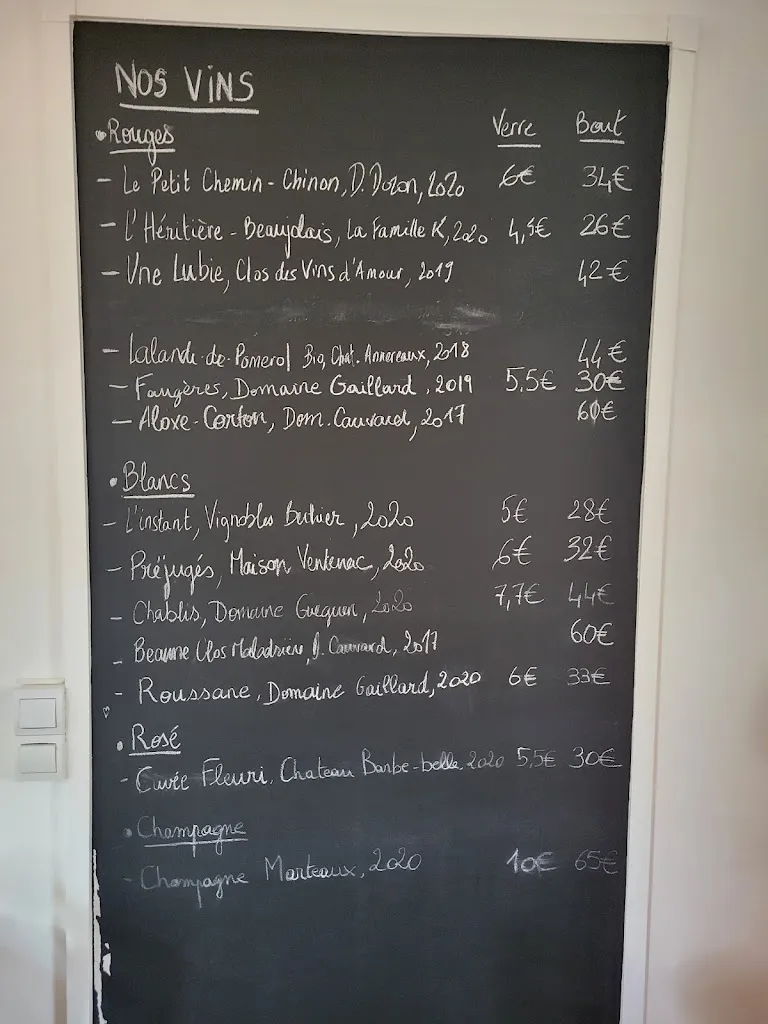 NOS ViNS
• Rouges Verre Bout
- Le Petit Chemin - Chinon, D. Dozon, 2020 6€ 34€
- L'Héritière - Beaujolais, La Famille K, 2020 4,5€ 26€
- Une Lubie, Clos des Vins d'Amour, 2019 42€
- Lalande-de-Pomerol Bio, Chat. Annereaux, 2018 44€
- Faugères, Domaine Gaillard, 2019 5,5€ 30€
- Aloxe-Corton, Dom. Cauvard, 2017 60€
• Blancs
- L'instant, Vignobles 2020 5€ 28€
- Préjugés, Maison Ventenac, 2020 6€ 32€
- Chablis, Domaine Gueguen, 2020 7,7€ 44€
- Beaune Clos Maladrière, D. Cauvard, 2017 60€
- Roussane, Domaine Gaillard, 2020 6€ 33€
• Rosé
- Cuvée Fleuri, Chateau Barbe-belle, 2020 5,5€ 30€
• Champagne
- Champagne Marteaux, 2020 10€ 65€